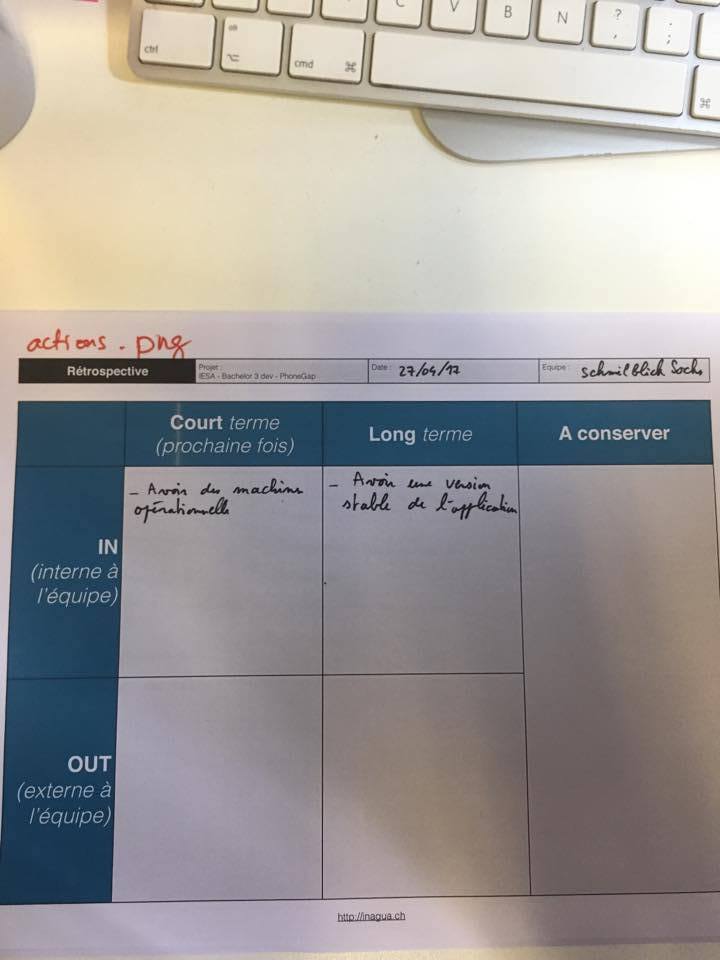 C V B N ? ,
; :
ctrl
alt
⌥
cmd ⌘
⌘
actions.png
Rétrospective
Projet :
IESA - Bachelor 3 dev - PhoneGap
Date : 27/04/17
Equipe : Schmilblick Socks
Court terme
(prochaine fois)
Long terme
A conserver
IN
(interne à
l'équipe)
- Avoir des machines
opérationnelle
- Avoir une version
stable de l'application
OUT
(externe à
l'équipe)
http://inagua.ch